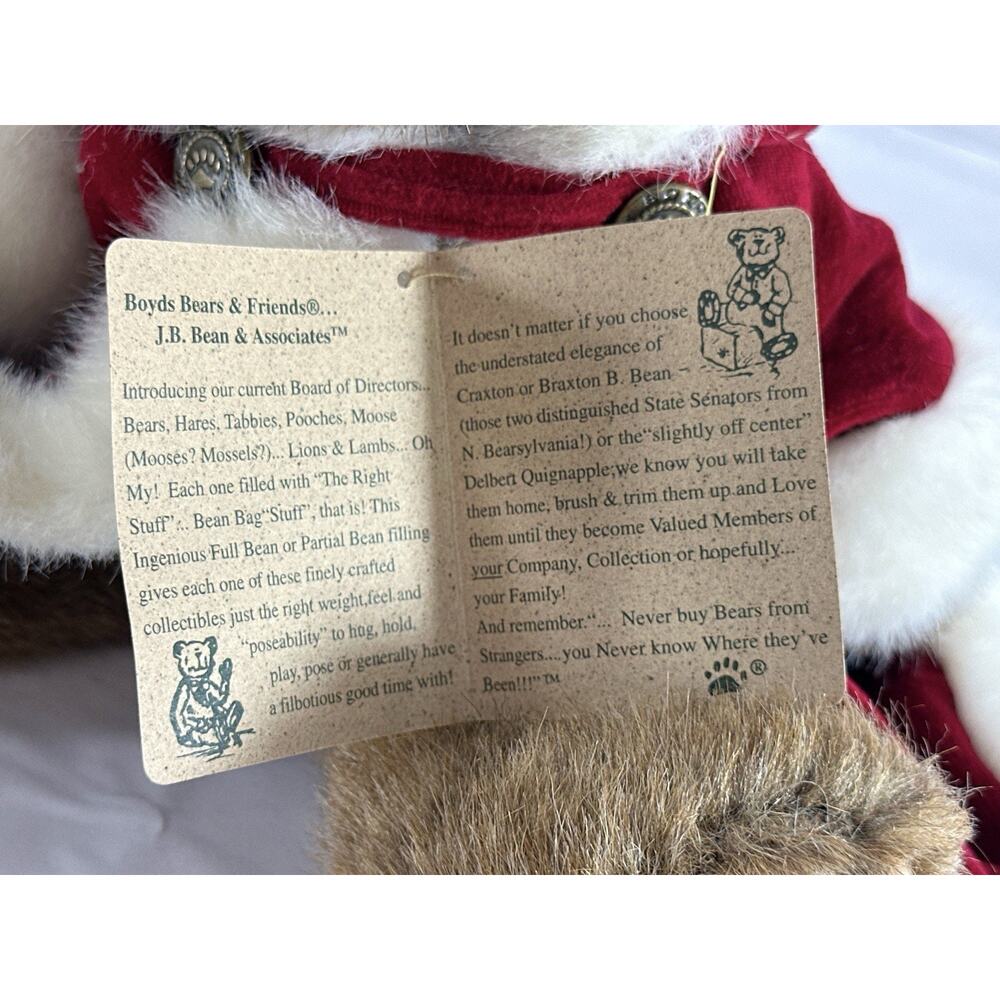 Boyds Bears & Friends®...
J.B. Bean & Associates™
Introducing our current Board of Directors...
Bears, Hares, Tabbies, Pooches, Moose
(Mooses? Mossels?)... Lions & Lambs... Oh
My! Each one filled with "The Right
Stuff"... Bean Bag "Stuff", that is! This
Ingenious Full Bean or Partial Bean filling
gives each one of these finely crafted
collectibles just the right weight,feel and
"poseability" to hug, hold,
play, pose or generally have
a filbotious good time with!
It doesn't matter if you choose
the understated elegance of
Craxton or Braxton B. Bean –
(those two distinguished State Senators from
N. Bearsylvania!) or the "slightly off center"
Delbert Quignapple;we know you will take
them home, brush & trim them up and Love
them until they become Valued Members of
your Company, Collection or hopefully...
your Family!
And remember."... Never buy Bears from
Strangers....you Never know Where they've
Been!!!"™
®